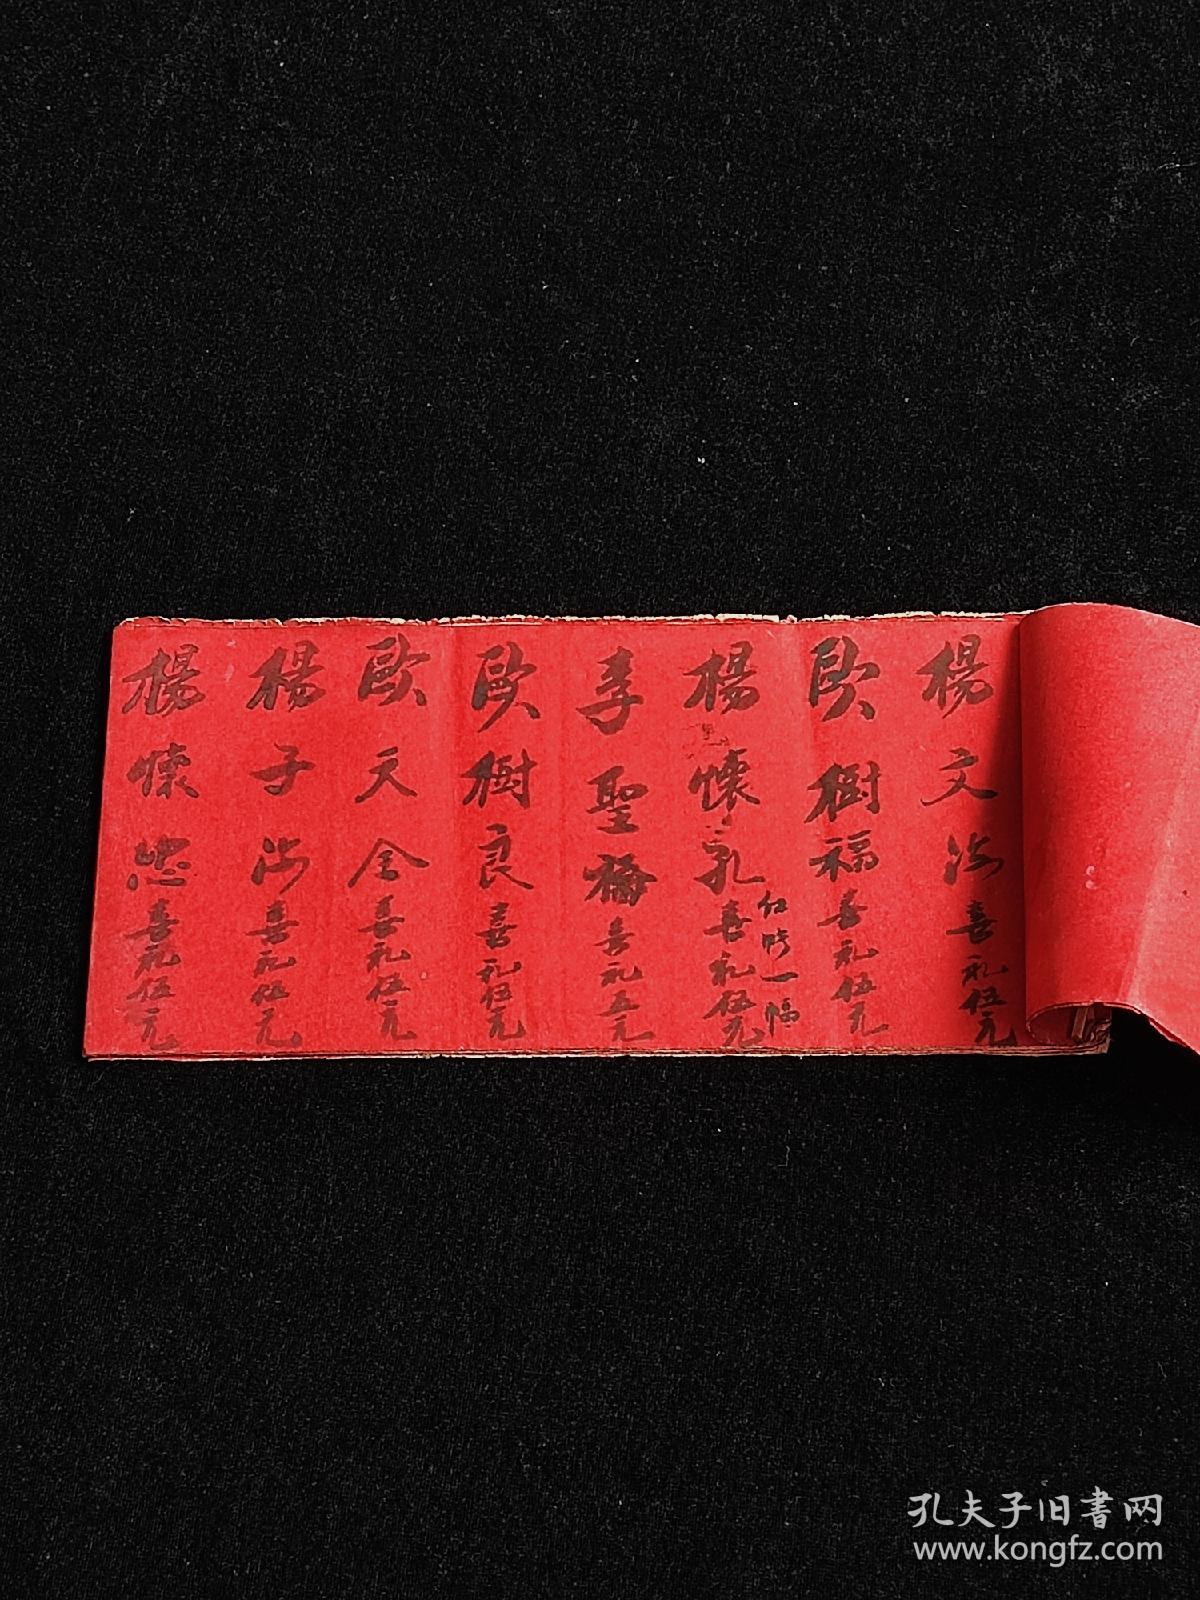 楊文海喜礼伍元
歐樹福喜礼伍元
楊懷乳喜礼伍元
红
一幅
李聖梅喜礼五元
歐樹良喜礼伍元
歐天全喜礼伍元
楊子海喜礼伍元
楊懷忠喜礼伍元
孔夫子旧書网
www.kongfz.com